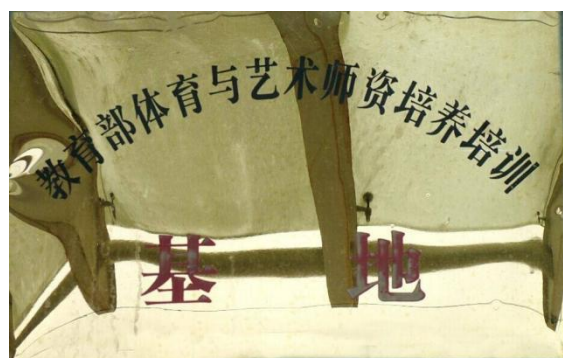 教育部体育与艺术师资培养培训
基地